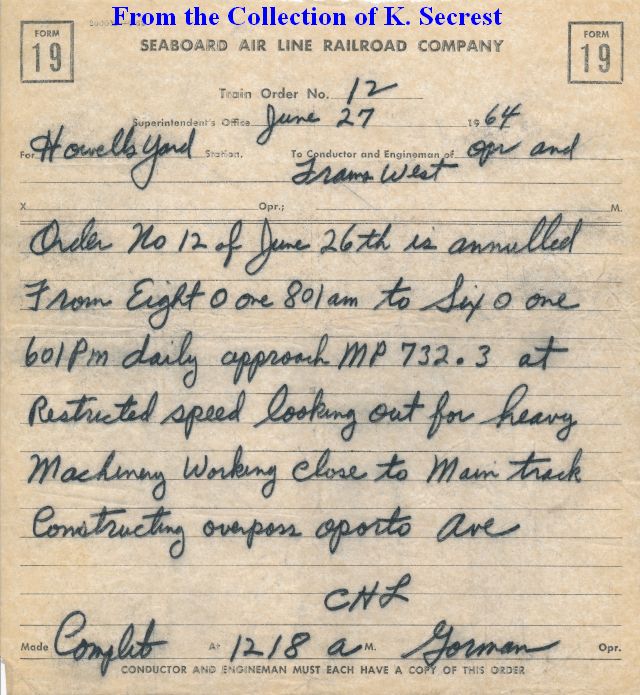 From the Collection of K. Secrest
FORM 19
SEABOARD AIR LINE RAILROAD COMPANY
FORM 19
Train Order No. 12
Superintendent's Office June 27 1964
For Howells Yard Station, To Conductor and Engineman of Opr and
Trains West
X Opr.; M.
Order No 12 of June 26th is annulled
From Eight 0 one 801am to Six 0 one
601Pm daily approach MP 732.3 at
Restricted speed looking out for heavy
Machinery Working Close to Main track
Constructing overpass oporto Ave
CHL
Made Complet At 1218 a M. Gorman Opr.
CONDUCTOR AND ENGINEMAN MUST EACH HAVE A COPY OF THIS ORDER